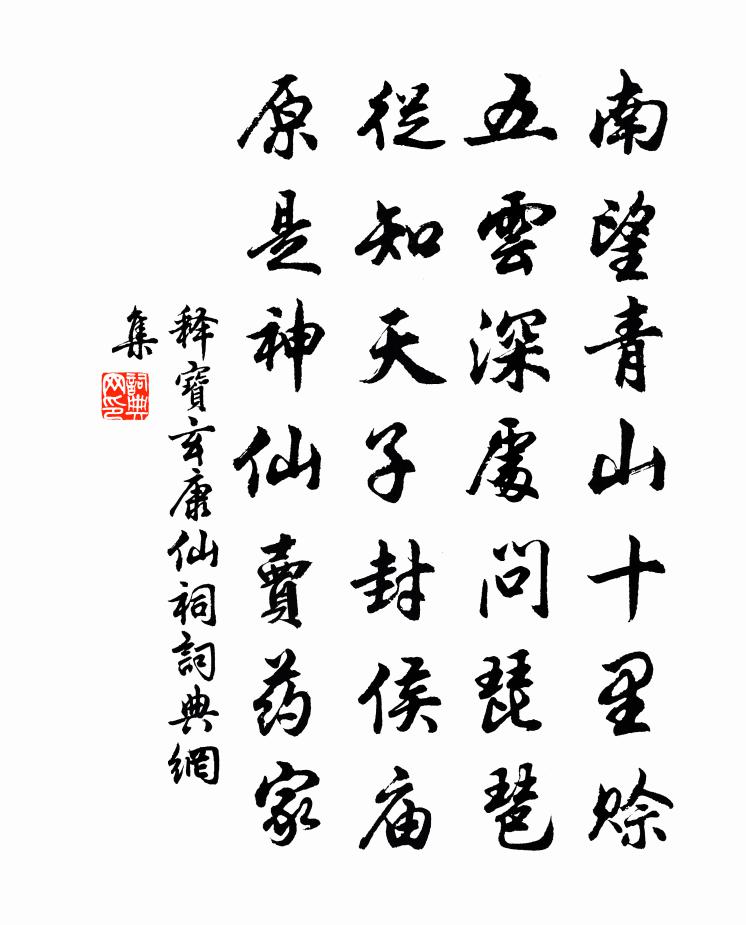 南望青山十里賒
五雲深處問琵琶
從知天子封侯庙
原是神仙賣药家
释寶玄康仙祠詞典網
集
詞典
网印